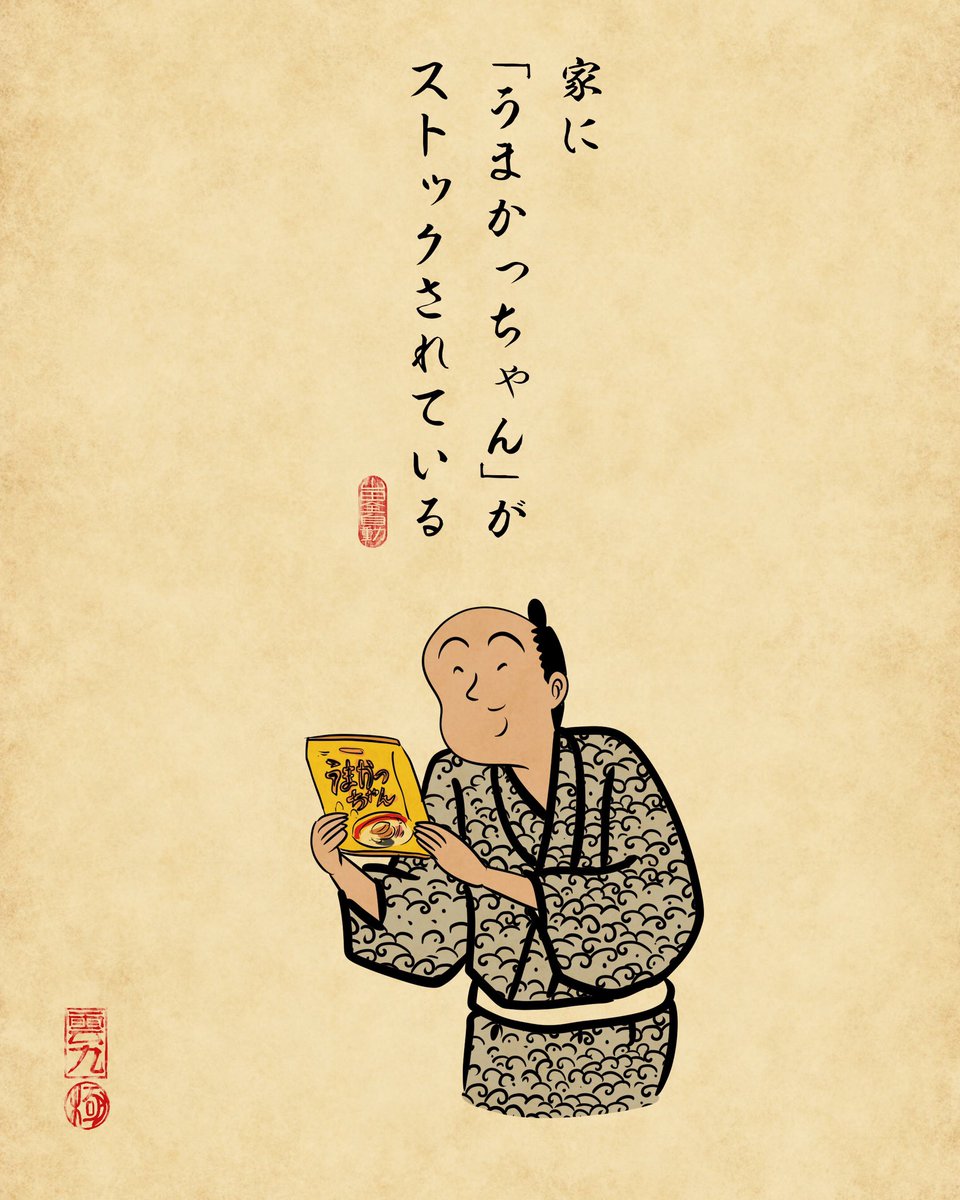 家に
「うまかっちゃん」が
ストックされている
うまかっ
ちゃん